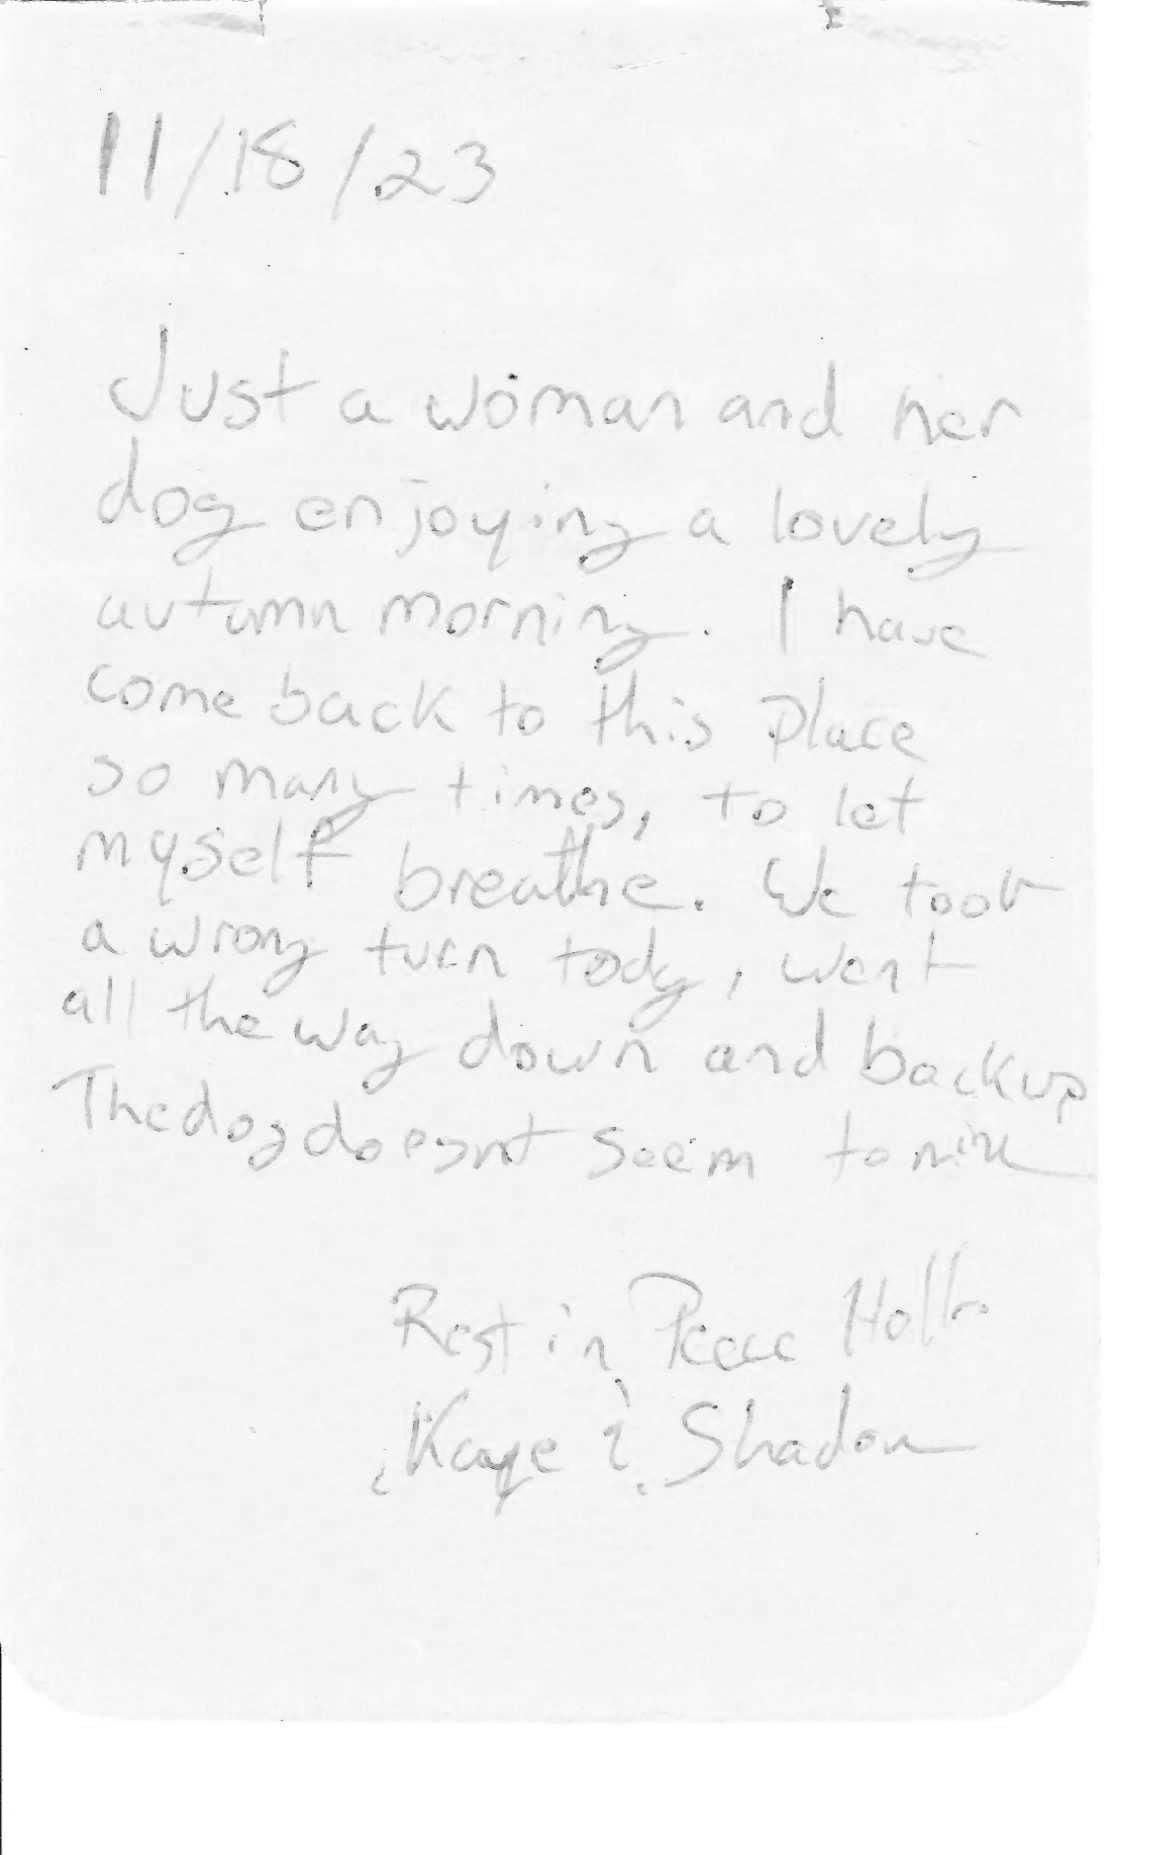 11/18/23
Just a woman and her
dog enjoying a lovely
autumn morning. I have
come back to this place
so many times, to let
myself breathe. We took
a wrong turn tody, went
all the way down and back up
The dog doesnt seem to
Rest in Peace
Kaye & Shadow